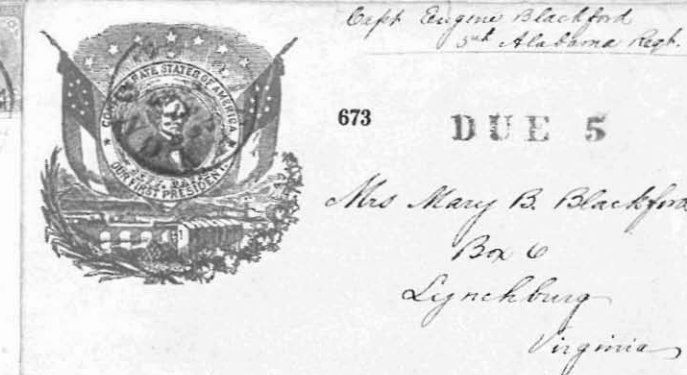 Capt Eugene Blackford
5th Alabama Regt.
CONFEDERATE STATES OF AMERICA
OUR FIRST PRESIDENT
673
DUE 5
Mrs Mary B. Blackford
Box 6
Lynchburg
Virginia